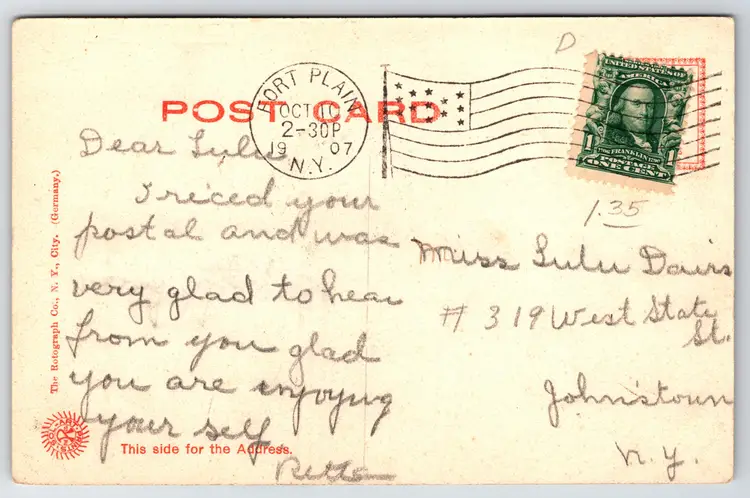 D
POST CARD
FORT PLAIN
OCT 10
2-30P
1907
N.Y.
UNITED STATES OF
AMERICA
1 FRANKLIN 1
POSTAGE
ONE CENT
1.35
Dear Lulu
I reced your
postal and was
very glad to hear
from you glad
you are enjoying
your self
Miss Lulu Davis
# 319 West State
St.
Johnstown
N.Y.
The Rotograph Co., N. Y., City. (Germany.)
This side for the Address.